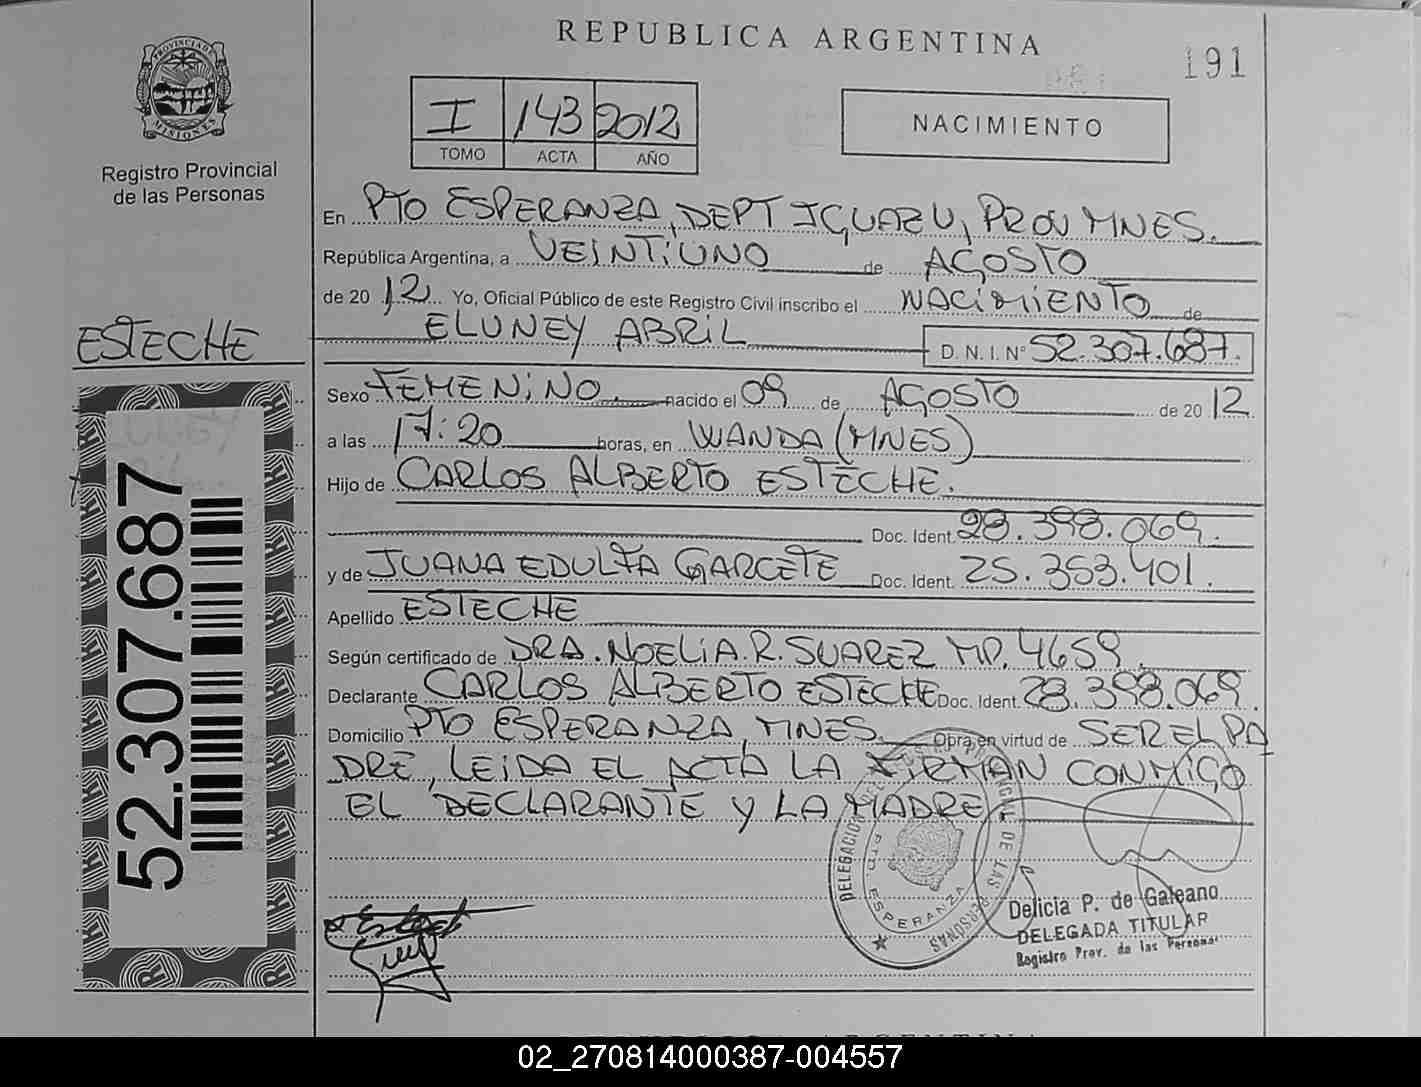 REPUBLICA ARGENTINA
191
PROVINCIA DE
MISIONES
Registro Provincial
de las Personas
I 143 2012
TOMO ACTA AÑO
NACIMIENTO
En PTO ESPERANZA, DEPT IGUAZU, PROV MNES.
República Argentina, a VEINTIUNO de AGOSTO
de 20 12 Yo, Oficial Público de este Registro Civil inscribo el NACIMIENTO de
ELUNEY ABRIL D. N. I. Nº 52.307.687.
ESTECHE
Sexo FEMENINO nacido el 09 de AGOSTO de 20 12
a las 17:20 horas, en WANDA (MNES)
Hijo de CARLOS ALBERTO ESTECHE.
Doc. Ident. 28.398.069.
y de JUANA EDULFA GARCETE Doc. Ident. 25.353.401.
Apellido ESTECHE
Según certificado de DRA. NOELIA. R. SUAREZ MP. 4659.
Declarante CARLOS ALBERTO ESTECHE Doc. Ident. 28.398.069.
Domicilio PTO ESPERANZA, MNES. Obra en virtud de SER EL PA
DRE, LEIDA EL ACTA LA FIRMAN CONMIGO
EL DECLARANTE Y LA MADRE.
52.307.687
PTO. ESPERANZA
Delicia P. de Galeano
DELEGADA TITULAR
Registro Prov. de las Personas
02_270814000387-004557